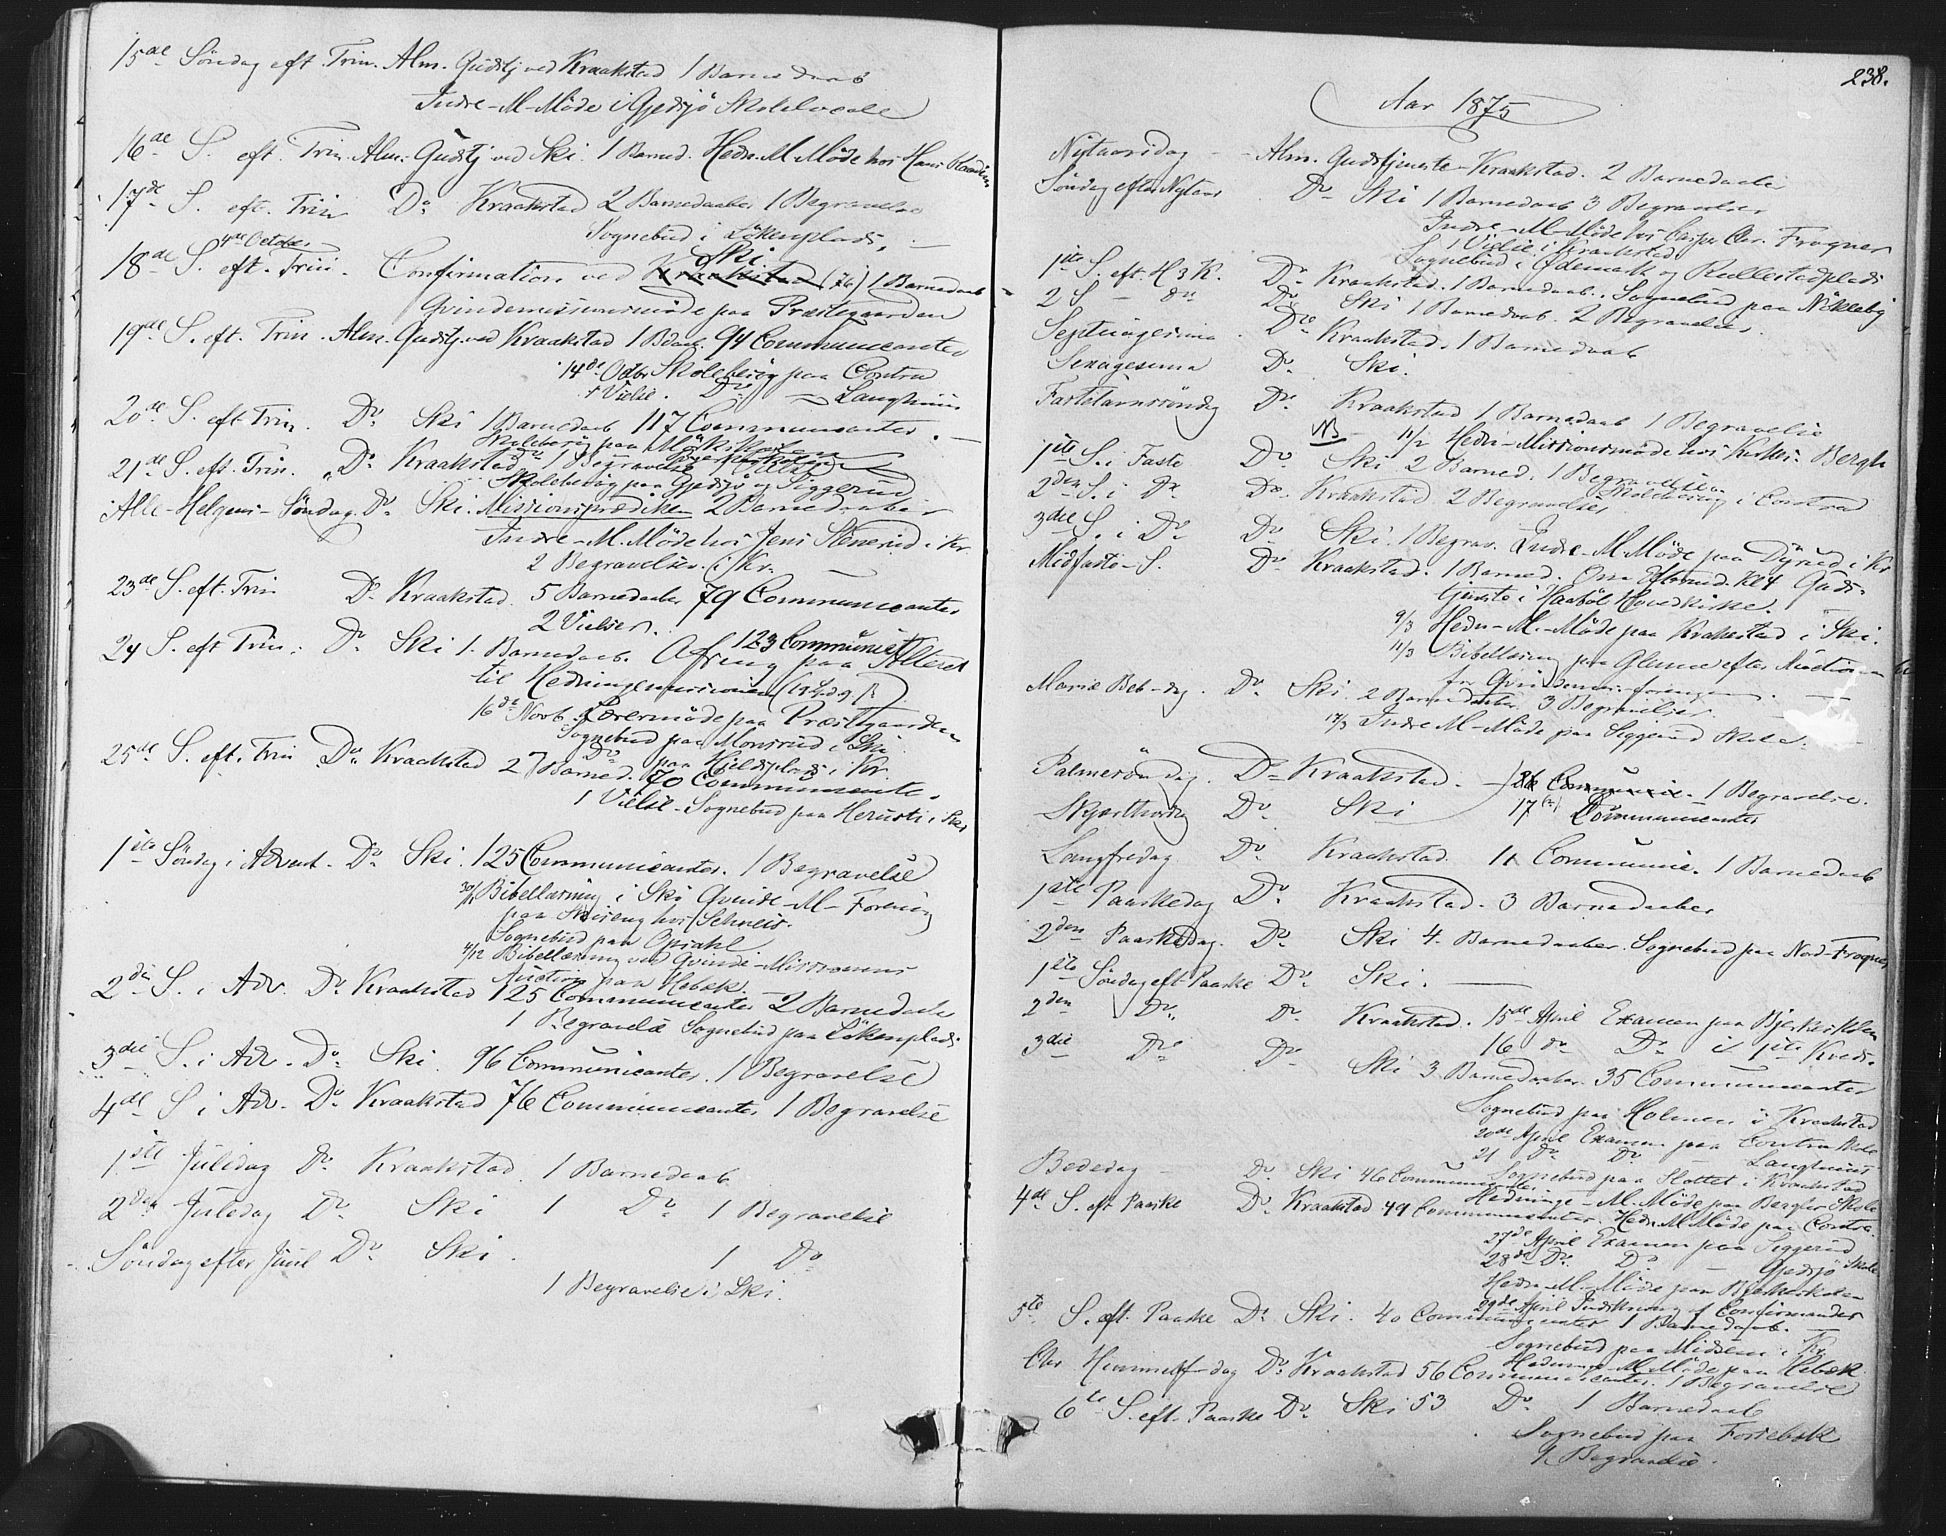 15de Söndag eft. Trin. Alm. Gudstj ved Kraakstad 1 Barnedaab
Indre-M-Möde i Gjedsjö Skolelocale
16de S. eft. Trin. Alm. Gudstj ved Ski. 1 Barned. Hedn. M. Möde hos Hans
17de S. eft. Trin Do Kraakstad 2 Barnedaaber 1 Begravelse
Sognebud i Lökenplads.
4de October
18de S. eft. Trin. Confirmation ved Kraakstad Ski (76) 1 Barnedaab
Qvindemissionsmöde paa Præstegaarden
19de S. eft. Trin. Alm. Gudstj. ved Kraakstad 1 Bdaab. 94 Communicanter
14de Octbr Skolebesög paa Contra
1 Vielse. Do - Langhuus
20de S. eft Trin. Do Ski 1 Barnedaab 117 Communicanter.
Skolebesög paa
21de S. eft. Trin. Do Kraakstad 1 Begravelse
Skolebesög paa Gjedsjö og Siggerud
Alle-Helgens-Söndag. Do Ski. Missionsprædiken 2 Barnedaaber
Indre-M. Möde hos Jens Stenerud i Kr.
2 Begravelser i Kr.
23de S. eft. Trin Do Kraakstad. 5 Barnedaaber 79 Communicanter
2 Vielser.
24 S. eft Trin. Do Ski 1. Barnedaab. 123 Communic
Ofring paa Alteret
til Hedningemissionen
16de Novb. Lærermöde paa Præstegaarden
Sognebud paa Monsrud i Ski
Do paa Kjeldsplads i Kr.
25de S. eft. Trin Do Kraakstad 2 Barned. 70 Communicanter
1 Vielse. Sognebud paa i Ski
1ste Söndag i Advent. Do Ski. 125 Communicanter. 1 Begravelse
30/11 Bibellæsning i Ski Qvinde-M-Forening
paa hos Schneis.
Sognebud paa Opsahl
4/12 Bibellæsning ved Qvinde-Missionens
Auction paa Hebæk.
2den S. i Adv. Do Kraakstad 125 Communicanter 2 Barnedaab
1 Begravelse Sognebud paa Lökenplads
3die S. i Adv. Do Ski. 96 Communicanter. 1 Begravelse
4de S i Adv. Do Kraakstad 76 Communicanter 1 Begravelse
1ste Juledag Do Kraakstad. 1 Barnedaab
2den Juledag Do Ski 1 Do 1 Begravelse
Söndag efter Juul Do Ski. 1 Do
1 Begravelse i Ski.
238.
Aar 1875
Nytaarsdag - Alm. Gudstjeneste - Kraakstad. 2 Barnedaab
Söndag efter Nytaar Do Ski 1 Barnedaab 3 Begravelser
Indre-M-Möde hos Casper Chr. Frogner
1 Vielse i Kraakstad
Sognebud i Ödemark og Rullestadplads
1ste S. eft. H 3 K. Do Kraakstad. 1 Barnedaab. Sognebud paa Nikleby
2 S - do Do Ski 1 Barnedaab. 2 Begravelser.
Septuagesima Do Kraakstad. 1 Barnedaab
Sexagesima Do Ski.
Fastelavnssöndag Do Kraakstad 1 Barnedaab 1 Begravelse
NB 11/2 Hedn-Missionsmöde hos Kirkes. Bergh
1ste S. i Faste Do Ski 2 Barned. 1 Begravelse
Skolebesög i Contra
2den S. i Do Do Kraakstad 2 Begravelser
3die S. i Do Do Ski. 1 Begrav. Indre-M-Möde paa Dyrud i Kr
Midfaste-S. Do Kraakstad. 1 Barned. Om Kl 4 Guds-
tjeneste i Haaböl Hovedkirke.
9/3 Hedn-M.-Möde paa Krakstad i Ski.
11/3 Bibellæsning paa Glenne efter Auction
for Qvindemis.-foreningen.
Mariæ Beb-dg. Do Ski. 2 Barnedaaber. 3 Begravelser.
17/3 Indre M-Möde paa Siggerud Skole.
Palmesöndag. Do Kraakstad. 26 Communic. 1 Begravelse.
Skjærthorsdg Do Ski 17 Communicanter
Langfredag Do Kraakstad 11 Communic. 1 Barnedaab
1ste Paaskedag Do Kraakstad. 3 Barnedaaber
2den PaaskeDag. Do Ski 4. Barnedaaber. Sognebud paa Nord-Frogner
1ste Söndag eft Paaske Do Ski.
2den Do. Do Kraakstad. 15de April Examen paa Bjerkeskolen
16 do Do i 1ste Kreds.
3die Do Do Ski 3 Barnedaaber. 35 Communicanter
Sognebud paa Holmen i Kraakstad
20de April Examen paa Contra Skole
21 Do Do - Langhuus
Bededag - Do Ski 46 Communicanter Sognebud paa Slottet i Kraakstad
Hedninge-M. Möde paa Bergter Skole
4de S. eft Paaske Do Kraakstad 49 Communicanter. Hedn. M. Möde paa Contra
27de April Examen paa Siggerud
28de Do. Do - Gjedsjö Skole
Hedn-M.-Möde paa Bjerkeskolen
29de April Indskrivning af Confirmander
5te S. eft. Paaske Do Ski. 40 Communicanter 1 Barnedaab.
Sognebud paa Midsem i Kr.
Hedninge-M. Möde paa Hebæk
Chr. Himmelf-dag Do Kraakstad 56 Communicanter. 1 Begravelse
6te S. eft. Paaske Do Ski 53 Do 1 Barnedaab
Sognebud paa Fossebæk
2 Begravelse.